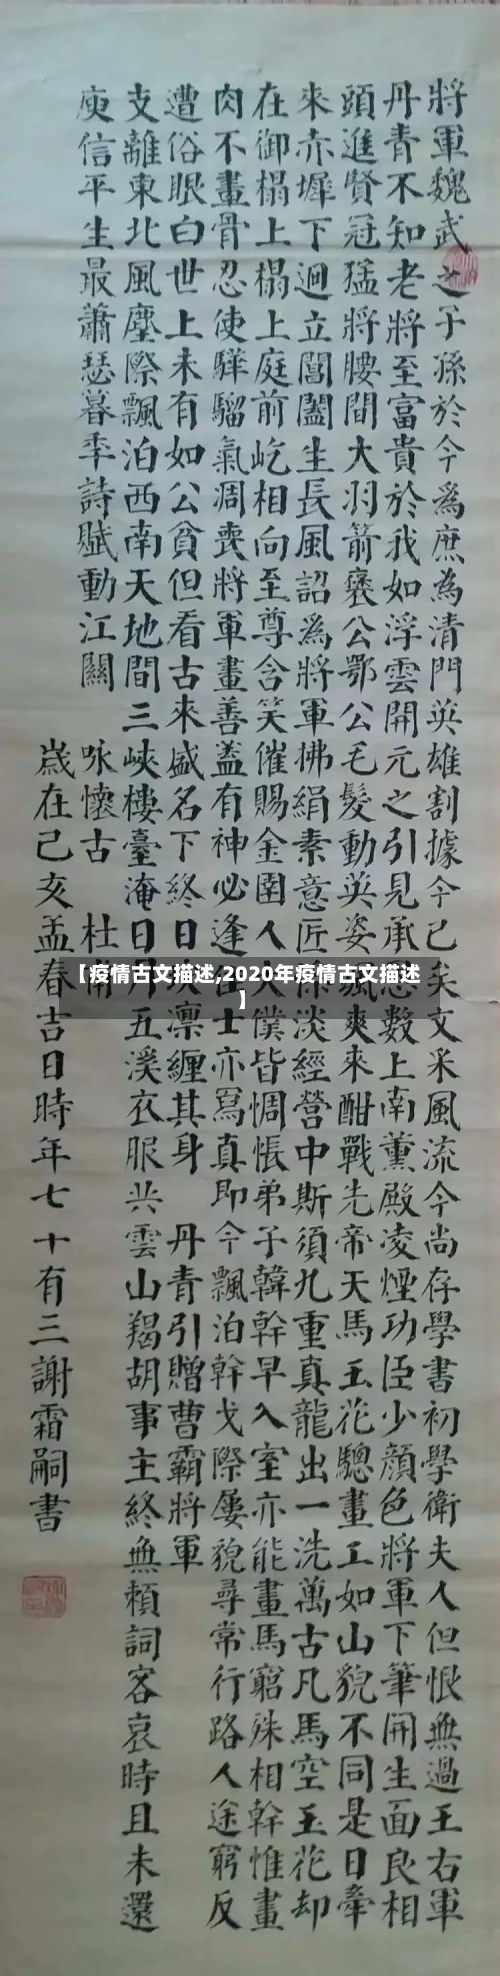 將軍魏武之子孫於今為庶為清門英雄割據今已矣文采風流今尚存學書初學衛夫人但恨無過王右軍
丹青不知老將至富貴於我如浮雲開元之引見承恩數上南薰殿凌煙功臣少顏色將軍下筆開生面良相
頭進賢冠猛將腰間大羽箭褒公鄂公毛髮動英姿颯爽來酣戰先帝天馬玉花驄畫工如山貌不同是日牽
來赤墀下迥立閶闔生長風詔為將軍拂絹素意匠慘淡經營中斯須九重真龍出一洗萬古凡馬空玉花却
在御榻上榻上庭前屹相向至尊含笑催賜金圉人太僕皆惆悵弟子韓幹早入室亦能畫馬窮殊相幹惟畫
肉不畫骨忍使驊騮氣凋喪將軍畫善蓋有神必逢佳士亦寫真即今飄泊幹戈際屢貌尋常行路人途窮反
遭俗眼白世上未有如公貧但看古來盛名下終日凜纏其身 丹青引贈曹霸將軍
支離東北風塵際飄泊西南天地間三峽樓臺淹日月五溪衣服共雲山羯胡事主終無賴詞客哀時且未還
庾信平生最蕭瑟暮年詩賦動江關 咏懷古 杜甫
歲在己亥孟春吉日時年七十有三謝霜嗣書
【疫情古文描述,2020年疫情古文描述
】